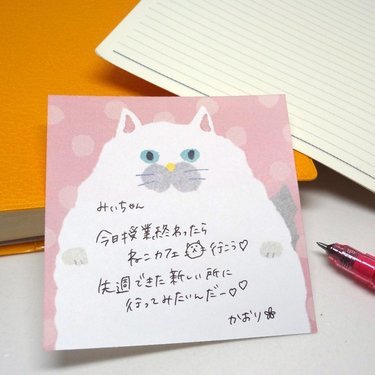 みぃちゃん
今日授業終わったら
ねこカフェ行こう♡
先週できた新しい所に
行ってみたいんだー♡♡
かおり